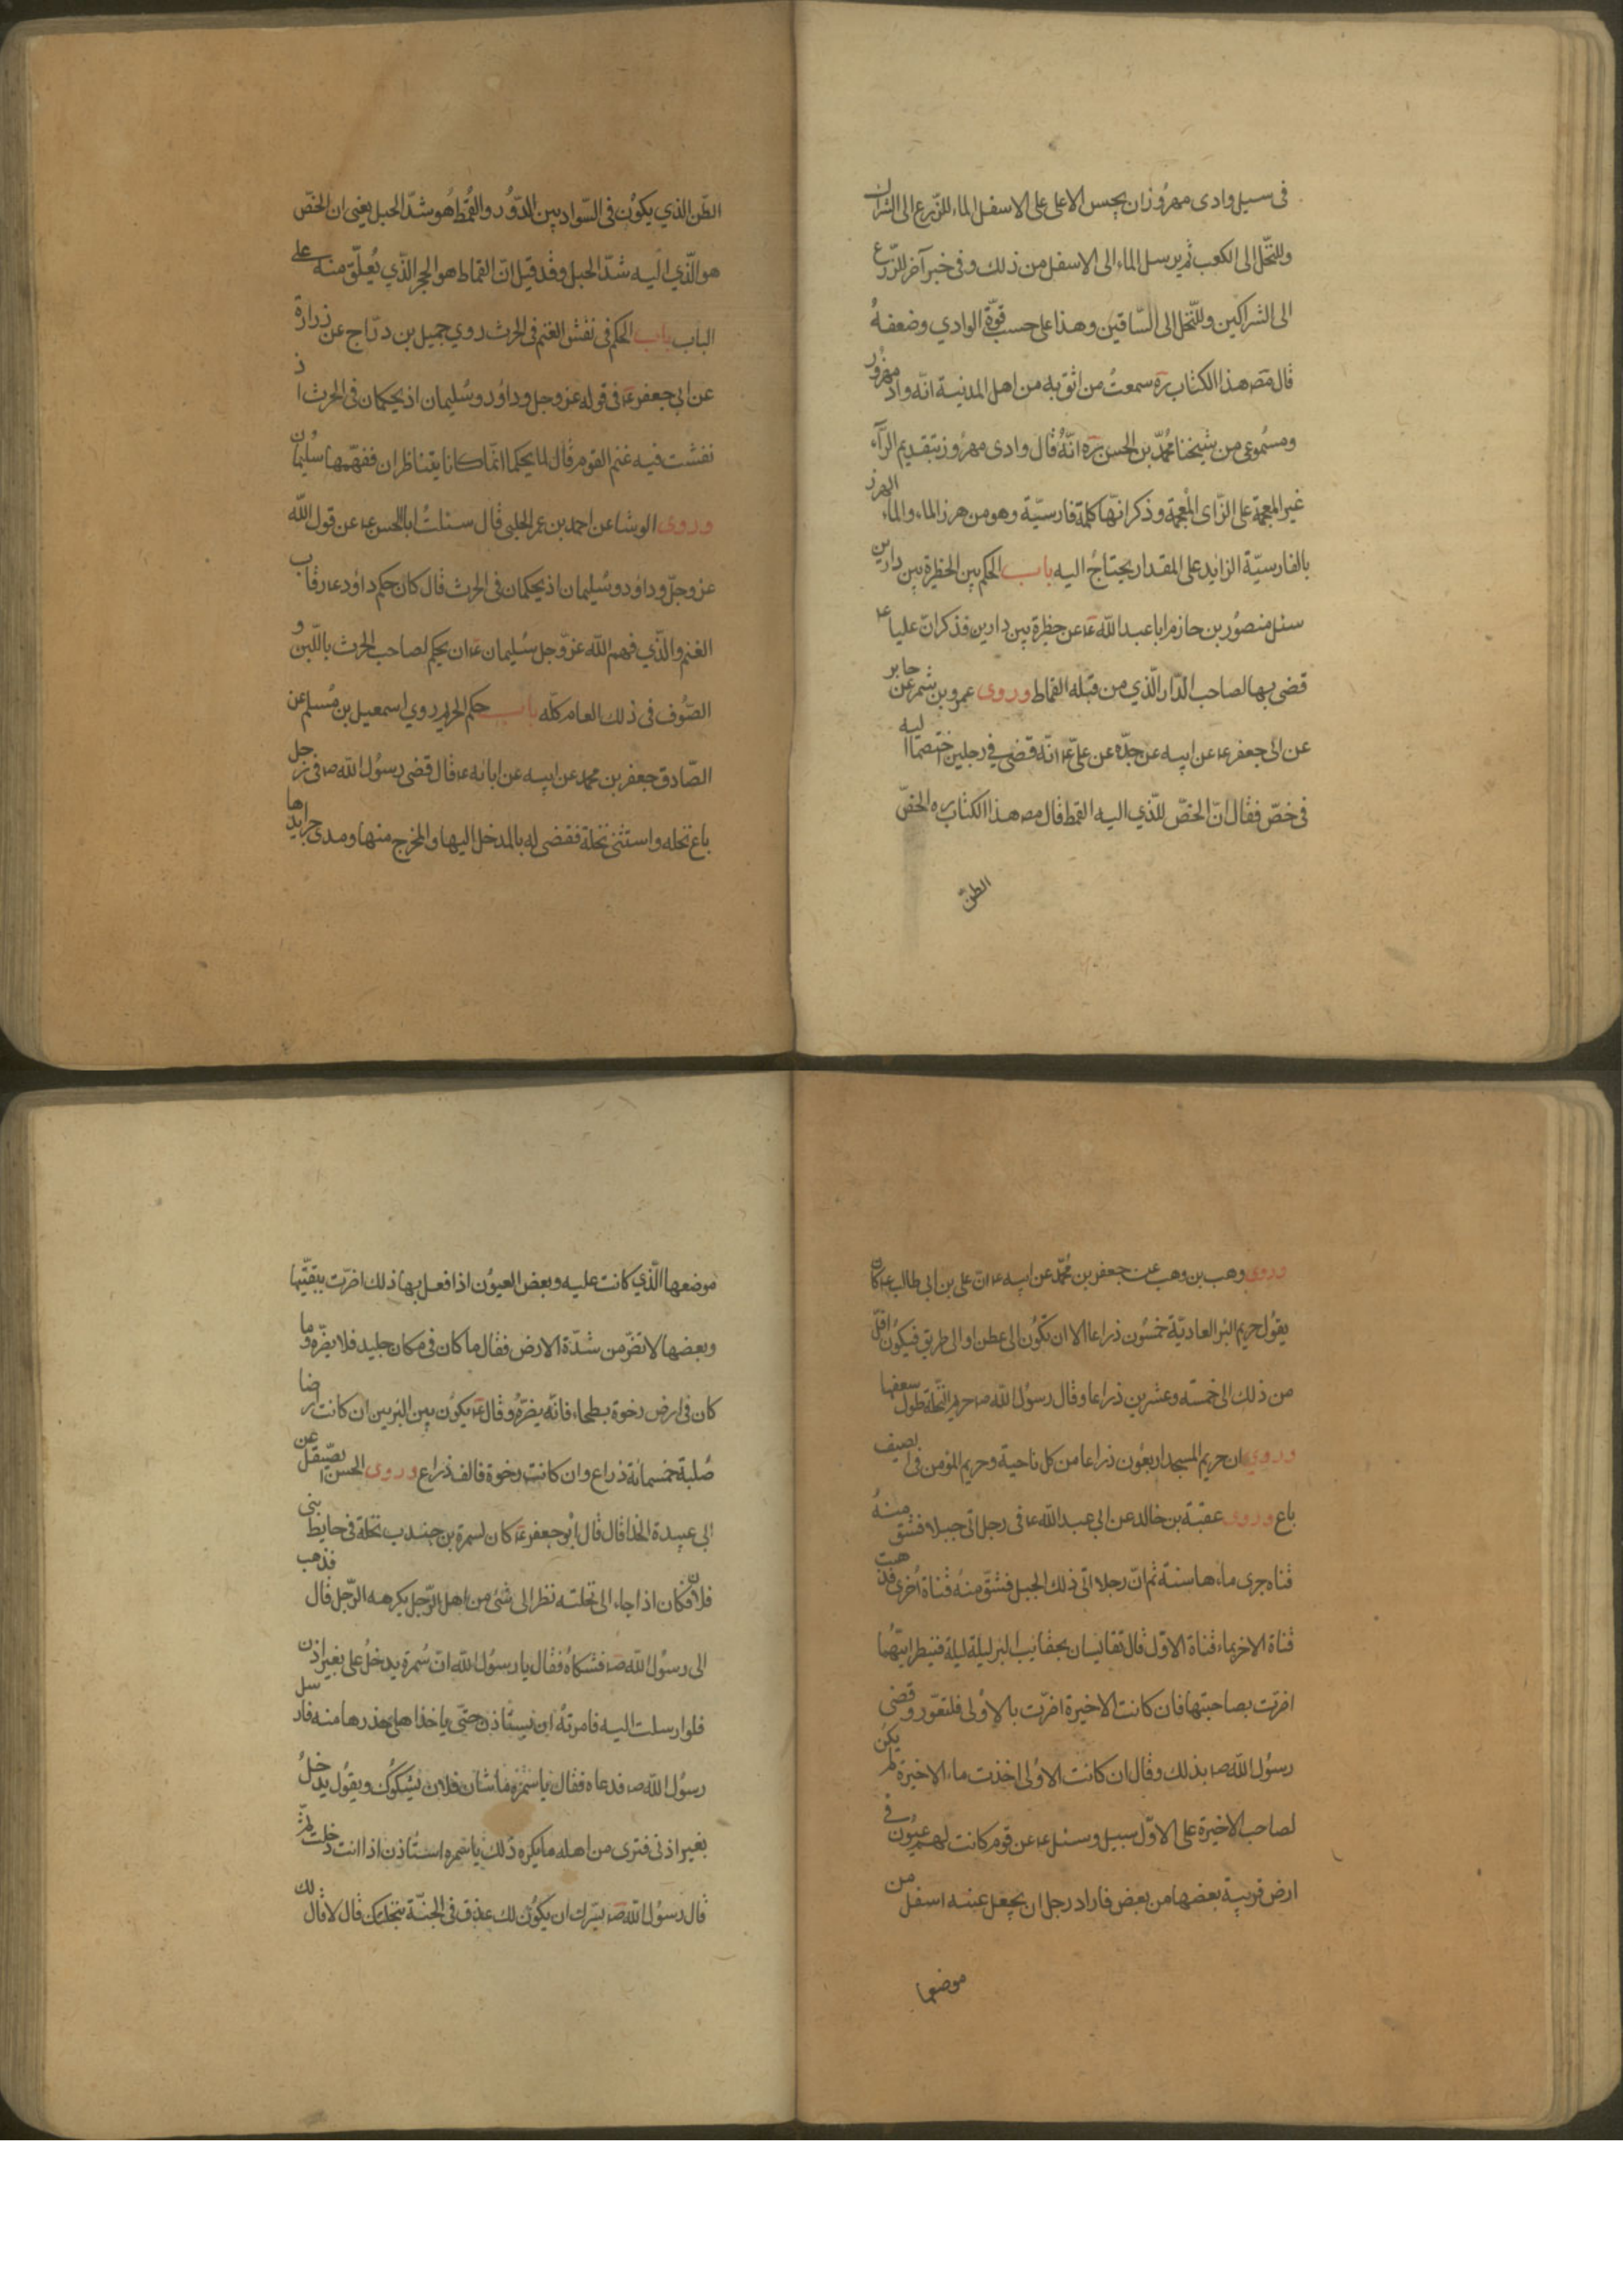 فى سيل وادى مهزوز ان يحبس الاعلى على الاسفل الماء للزرع الى الشراك
وللنخل الى الكعب ثم يرسل الماء الى الاسفل من ذلك وفى خبر آخر للزرع
الى الشراكين وللنخل الى الساقين وهذا على حسب قوة الوادي وضعفه
قال مص هذا الكتاب ره سمعت من اثق به من اهل المدينة انه وادى مهزور
ومسموعى من شيخنا محمد بن الحسن ره انه قال وادى مهروز بتقديم الرآء
غير المعجمة على الزاى المعجمة وذكر انها كلمة فارسية وهو من هرز الماء والماء الهرز
بالفارسية الزايد على المقدار يحتاج اليه باب الحكم بين الحظرة بين دارين
سئل منصور بن حازم ابا عبد الله ع عن حظرة بين دارين فذكر ان عليا ع
قضى بها لصاحب الدار الذي من قبله القماط وروى عمرو بن شمر عن جابر
عن ابى جعفر ع عن ابيه عن جده عن علي ع انه قضى في رجلين اختصما اليه
فى خص فقال ان الخص للذي اليه القمط قال مص هذا الكتاب ره الخص
الطن
الطن الذي يكون فى السواد بين الدور والقمط هو شد الحبل يعنى ان الخص
هو الذي اليه شد الحبل وقد قيل ان القماط هو الحجر الذي يعلق منه على
الباب باب الحكم فى نفش الغنم فى الحرث روي جميل بن دراج عن زرارة
عن ابي جعفر ع فى قوله عز وجل وداود وسليمان اذ يحكمان فى الحرث اذ
نفشت فيه غنم القوم قال لم يحكما انما كانا يتناظران ففهمها سليمان
وروى الوشا عن احمد بن عمر الحلبى قال سئلت ابا الحسن ع عن قول الله
عز وجل وداود وسليمان اذ يحكمان فى الحرث قال كان حكم داود ع رقاب
الغنم والذي فهم الله عز وجل سليمان ع ان يحكم لصاحب الحرث باللبن و
الصوف فى ذلك العام كله باب حكم الحريم روي اسمعيل بن مسلم عن
الصادق جعفر بن محمد عن ابيه عن ابائه ع قال قضى رسول الله ص فى رجل
باع نخله واستثنى نخلة فقضى له بالمدخل اليها والمخرج منها ومدى جرايدها
وروى وهب بن وهب عن جعفر بن محمد عن ابيه ع ان على بن ابي طالب ع كان
يقول حريم البئر العادية خمسون ذراعا الا ان تكون الى عطن او الى طريق فيكون اقل
من ذلك الى خمسه وعشرين ذراعا وقال رسول الله ص حريم النخلة طول سعفها
وروي ان حريم المسجد اربعون ذراعا من كل ناحية وحريم المؤمن فى الصيف
باع وروى عقبة بن خالد عن ابي عبد الله ع فى رجل اتى جبلا فشق منه
قناه جرى ماءها سنة ثم ان رجلا اتى ذلك الجبل فشق منه قناة اخرى فذهبت
قناة الاخر بماء قناة الاول قال تقايسان بحقايب البئر ليلة ليلة فينظر ايتهما
اضرت بصاحبتها فان كانت الاخيرة اضرت بالاولى فلتعور وقضى
رسول الله ص بذلك وقال ان كانت الاولى اخذت ماء الاخيرة لم يكن
لصاحب الاخيرة على الاول سبيل وسئل ع عن قوم كانت لهم عيون فى
ارض قريبة بعضها من بعض فاراد رجل ان يجعل عينه اسفل من
موضعها
موضعها الذي كانت عليه وبعض العيون اذا فعل بها ذلك اضرت ببقيتها
وبعضها لا تضر من شدة الارض فقال ما كان فى مكان جليد فلا يضره وما
كان فى ارض رخوة بطحاء فانه يضره وقال ع يكون بين البئرين ان كانت ارضا
صلبة خمسمائة ذراع وان كانت رخوة فالف ذراع وروى الحسن الصيقل عن
ابي عبيدة الحذا قال قال ابو جعفر ع كان لسمرة بن جندب نخلة فى حايط بنى
فلان فكان اذا جاء الى نخلته نظر الى شئ من اهل الرجل يكرهه الرجل قال فذهب
الى رسول الله ص فشكاه فقال يا رسول الله ان سمرة يدخل على بغير اذن
فلو ارسلت اليه فامرته ان يستاذن حتى ياخذ اهلى حذرها منه فارسل
رسول الله ص فدعاه فقال يا سمرة ما شان فلان يشكوك ويقول يدخل
بغير اذنى فترى من اهله ما يكره ذلك يا سمره استاذن اذا انت دخلت ثم
قال رسول الله ص يسرك ان يكون لك عذق فى الجنة بنخلتك قال لا قال لك